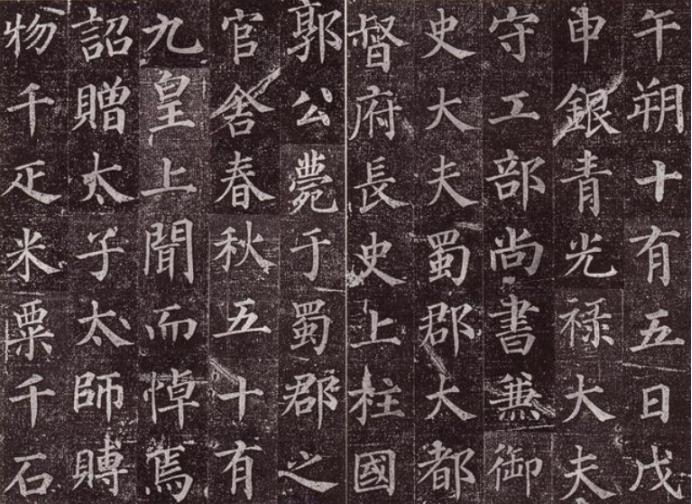 午朔十有五日戊
申銀青光禄大夫
守工部尚書兼御
史大夫蜀郡大都
督府長史上柱國
郭公薨于蜀郡之
官舍春秋五十有
九皇上聞而悼焉
詔贈太子太師賻
物千疋米粟千石